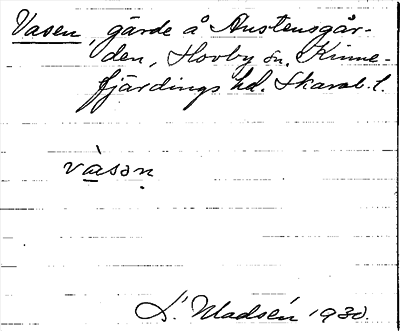 Vasen, gärde å Austensgår-
den, Hovby sn, Kinne-
fjärdings hd. Skarab. l.
vàsən
L. Madsén 1930.